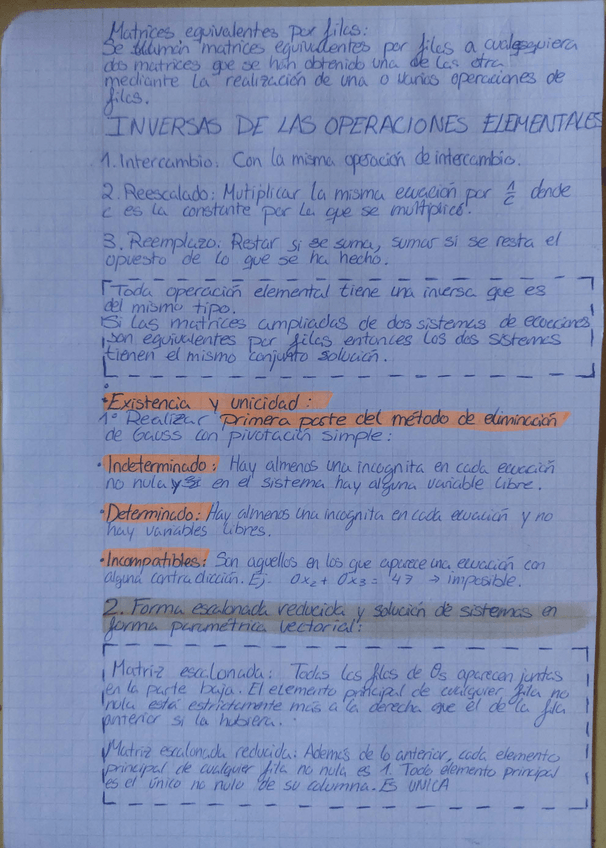 Matrices equivalentes por filas:
Se llaman matrices equivalentes por filas a cualesquiera
dos matrices que se han obtenido una de las otra
mediante la realización de una o varias operaciones de
filas.
INVERSAS DE LAS OPERACIONES ELEMENTALES
1. Intercambio: Con la misma operación de intercambio.
2. Reescalado: Mutiplicar la misma ecuación por 1/c donde
c es la constante por la que se multiplicó.
3. Reemplazo: Restar si se suma, sumar si se resta el
opuesto de lo que se ha hecho.
Toda operación elemental tiene una inversa que es
del mismo tipo.
Si las matrices ampliadas de dos sistemas de ecuaciones
son equivalentes por filas entonces los dos sistemas
tienen el mismo conjunto solución.
• Existencia y unicidad:
1º Realizar primera parte del método de eliminación
de Gauss con pivotación simple:
• Indeterminado: Hay almenos una incognita en cada ecuación
no nula y en el sistema hay alguna variable libre.
• Determinado: Hay almenos una incognita en cada ecuación y no
hay variables libres.
• Incompatibles: Son aquellos en los que aparece una ecuación con
alguna contradicción. Ej. 0x₂ + 0x₃ = 47 → imposible.
2. Forma escalonada reducida y solución de sistemas en
forma paramétrica vectorial:
Matriz escalonada: Todas las filas de 0s aparecen juntas
en la parte baja. El elemento principal de cualquier fila no
nula está estrictamente más a la derecha que el de la fila
anterior si la hubiera.
Matriz escalonada reducida: Además de lo anterior, cada elemento
principal de cualquier fila no nula es 1. Todo elemento principal
es el único no nulo de su columna. ES UNICA